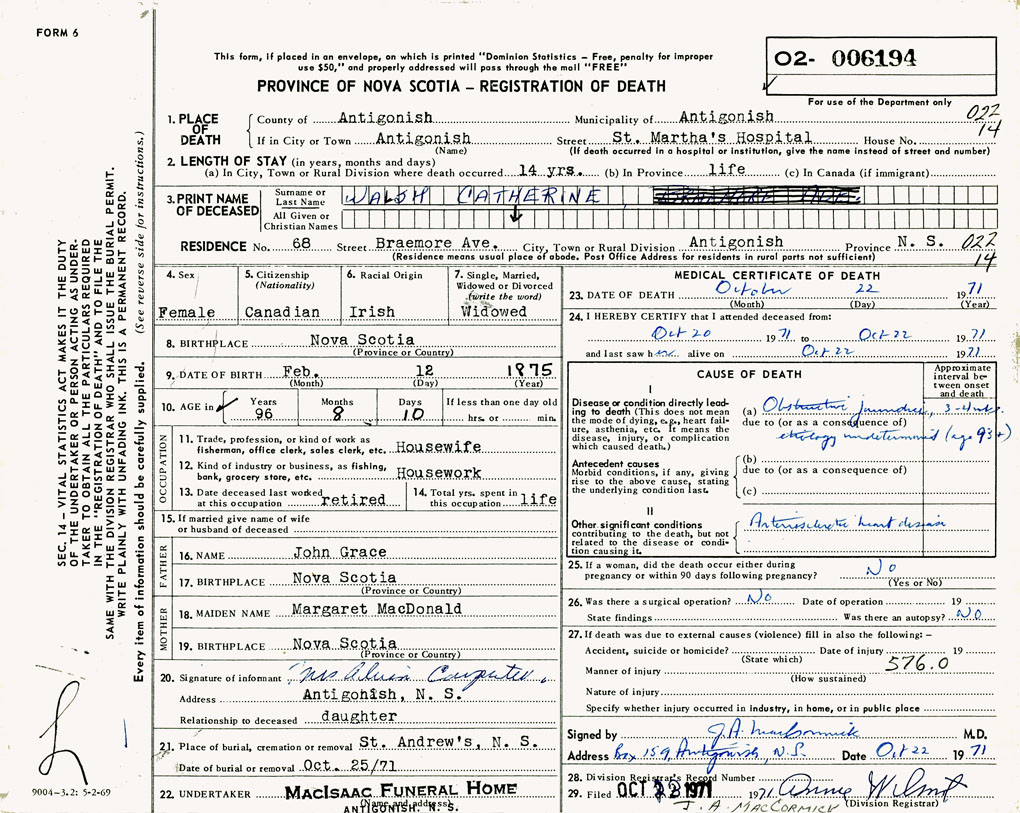 FORM 6
This form, if placed in an envelope, on which is printed "Dominion Statistics – Free, penalty for improper
use $50," and properly addressed will pass through the mail "FREE"
PROVINCE OF NOVA SCOTIA – REGISTRATION OF DEATH
02- 006194
For use of the Department only
022
14
1. PLACE OF DEATH
County of Antigonish Municipality of Antigonish
If in City or Town Antigonish Street St. Martha's Hospital House No.
(Name) (If death occurred in a hospital or institution, give the name instead of street and number)
2. LENGTH OF STAY (in years, months and days)
(a) In City, Town or Rural Division where death occurred 14 yrs. (b) In Province life (c) In Canada (if immigrant)
3. PRINT NAME OF DECEASED
Surname or Last Name WALSH CATHERINE
All Given or Christian Names
RESIDENCE No. 68 Street Braemore Ave. City, Town or Rural Division Antigonish Province N. S. 022
(Residence means usual place of abode. Post Office Address for residents in rural parts not sufficient) 14
4. Sex
Female
5. Citizenship
(Nationality)
Canadian
6. Racial Origin
Irish
7. Single, Married,
Widowed or Divorced
(write the word)
Widowed
8. BIRTHPLACE Nova Scotia
(Province or Country)
9. DATE OF BIRTH Feb. 12 1875
(Month) (Day) (Year)
10. AGE in Years Months Days If less than one day old
96 8 10 hrs. or min.
OCCUPATION
11. Trade, profession, or kind of work as
fisherman, office clerk, sales clerk, etc. Housewife
12. Kind of industry or business, as fishing,
bank, grocery store, etc. Housework
13. Date deceased last worked
at this occupation retired
14. Total yrs. spent in
this occupation life
15. If married give name of wife
or husband of deceased
FATHER
16. NAME John Grace
17. BIRTHPLACE Nova Scotia
(Province or Country)
MOTHER
18. MAIDEN NAME Margaret MacDonald
19. BIRTHPLACE Nova Scotia
(Province or Country)
20. Signature of informant Mrs Carpenter
Address Antigonish, N. S.
Relationship to deceased daughter
21. Place of burial, cremation or removal St. Andrew's, N. S.
Date of burial or removal Oct. 25/71
22. UNDERTAKER MACISAAC FUNERAL HOME
(Name and address)
ANTIGONISH, N. S.
MEDICAL CERTIFICATE OF DEATH
23. DATE OF DEATH October 22 1971
(Month) (Day) (Year)
24. I HEREBY CERTIFY that I attended deceased from:
Oct 20 1971 to Oct 22 1971
and last saw her alive on Oct 22 1971
CAUSE OF DEATH
Approximate
interval be-
tween onset
and death
I
Disease or condition directly lead-
ing to death (This does not mean
the mode of dying, e.g., heart fail-
ure, asthenia, etc. It means the
disease, injury, or complication
which caused death.)
(a) Obstructive jaundice, 3-4 wks.
due to (or as a consequence of)
etiology undetermined (age 93+)
Antecedent causes
Morbid conditions, if any, giving
rise to the above cause, stating
the underlying condition last.
(b)
due to (or as a consequence of)
(c)
II
Other significant conditions
contributing to the death, but not
related to the disease or condi-
tion causing it.
Arteriosclerotic heart disease
25. If a woman, did the death occur either during
pregnancy or within 90 days following pregnancy? No
(Yes or No)
26. Was there a surgical operation? No Date of operation 19
State findings Was there an autopsy? No
27. If death was due to external causes (violence) fill in also the following: –
Accident, suicide or homicide? Date of injury 19
(State which)
Manner of injury 576.0
(How sustained)
Nature of injury
Specify whether injury occurred in industry, in home, or in public place
Signed by J.A. MacCormick M.D.
Address Box 159, Antigonish, N.S. Date Oct 22 1971
28. Division Registrar's Record Number
29. Filed OCT 22 1971 1971 Anne Wilmot
J. A. MACCORMICK (Division Registrar)
SEC. 14 – VITAL STATISTICS ACT MAKES IT THE DUTY
OF THE UNDERTAKER OR PERSON ACTING AS UNDER-
TAKER TO OBTAIN ALL THE PARTICULARS REQUIRED
IN THE "REGISTRATION OF DEATH" AND TO FILE THE
SAME WITH THE DIVISION REGISTRAR WHO SHALL ISSUE THE BURIAL PERMIT.
WRITE PLAINLY WITH UNFADING INK. THIS IS A PERMANENT RECORD.
Every item of information should be carefully supplied. (See reverse side for instructions.)
9004-3.2: 5-2-69